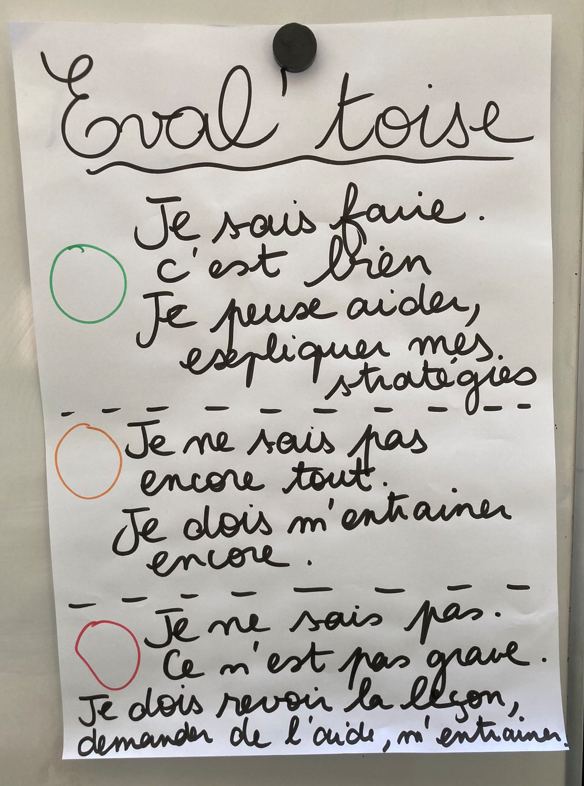 Eval' toise
Je sais faire.
c'est bien
Je peux aider,
expliquer mes
stratégies
Je ne sais pas
encore tout.
Je dois m'entrainer
encore.
Je ne sais pas.
Ce n'est pas grave.
Je dois revoir la leçon,
demander de l'aide, m'entrainer.